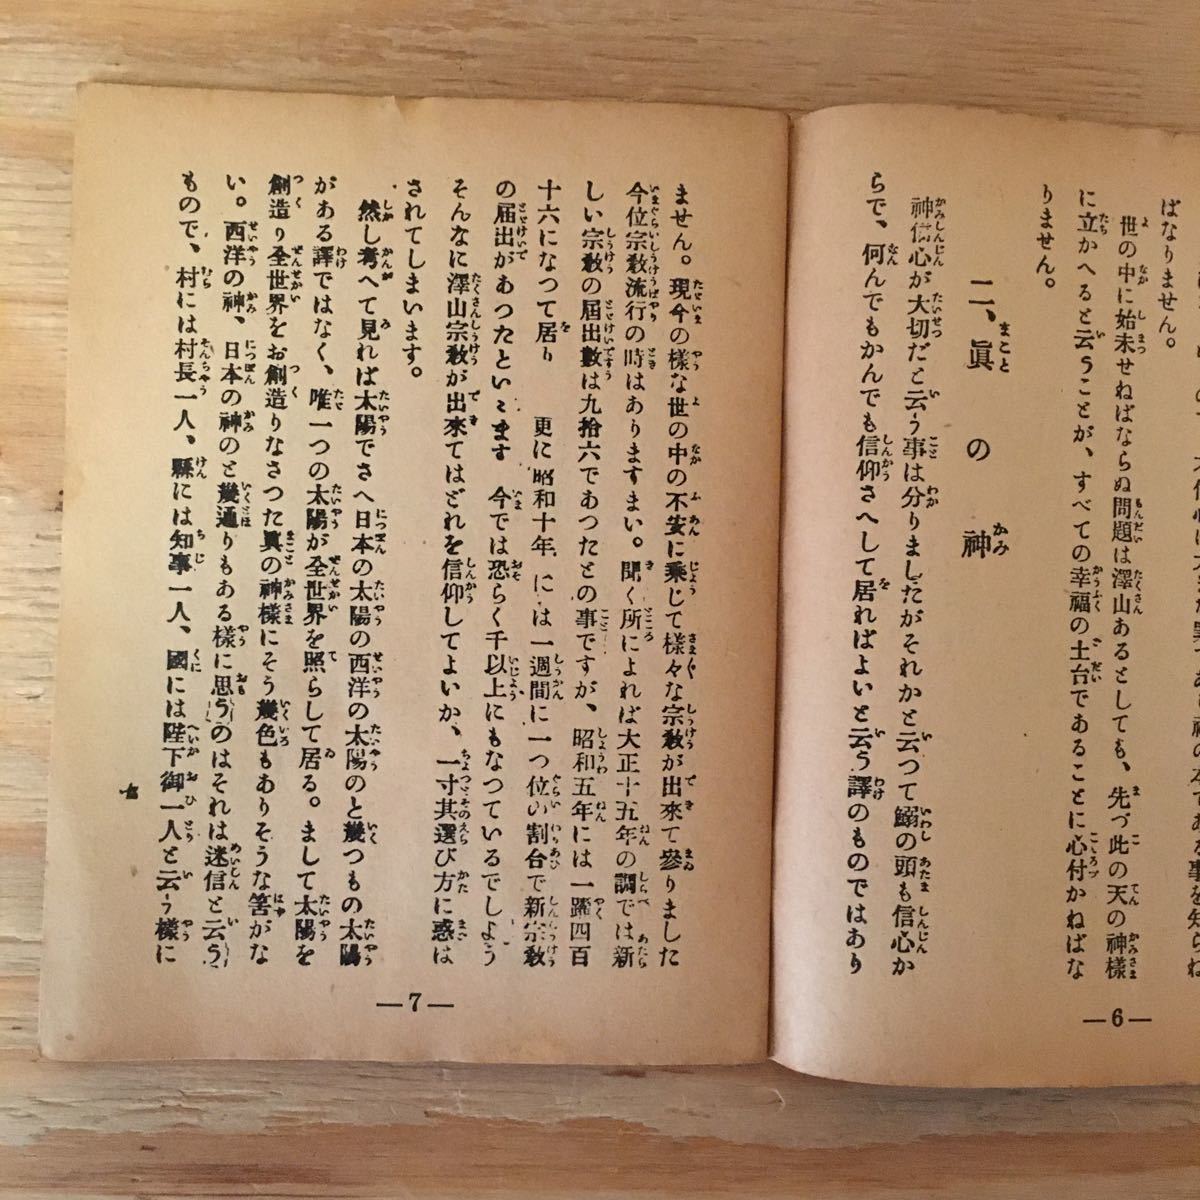 ばなりません。
世の中に始末せねばならぬ問題は澤山あるとしても、先づ此の天の神様
に立かへると云うことが、すべての幸福の土台であることに心付かねばな
りません。
二、眞の神
神信心が大切だと云う事は分りましたがそれかと云つて鰯の頭も信心か
らで、何んでもかんでも信仰さへして居ればよいと云う譯のものではあり
—6—
ません。現今の樣な世の中の不安に乘じて樣々な宗敎が出來て參りました
今位宗敎流行の時はありますまい。聞く所によれば大正十五年の調では新
しい宗敎の屆出數は九拾六であつたとの事ですが、昭和五年には一躍四百
十六になつて居り 更に昭和十年には一週間に一つ位の割合で新宗敎
の届出があつたといゝます 今では恐らく千以上にもなつているでしよう
そんなに澤山宗敎が出來てはどれを信仰してよいか、一寸其選び方に惑は
されてしまいます。
然し考へて見れば太陽でさへ日本の太陽の西洋の太陽のと幾つもの太陽
がある譯ではなく、唯一つの太陽が全世界を照らして居る。まして太陽を
創造り全世界をお創造りなさつた眞の神樣にそう幾色もありそうな筈がな
い。西洋の神、日本の神のと幾通りもある樣に思うのはそれは迷信と云う
もので、村には村長一人、縣には知事一人、國には陛下御一人と云う樣に
—7—